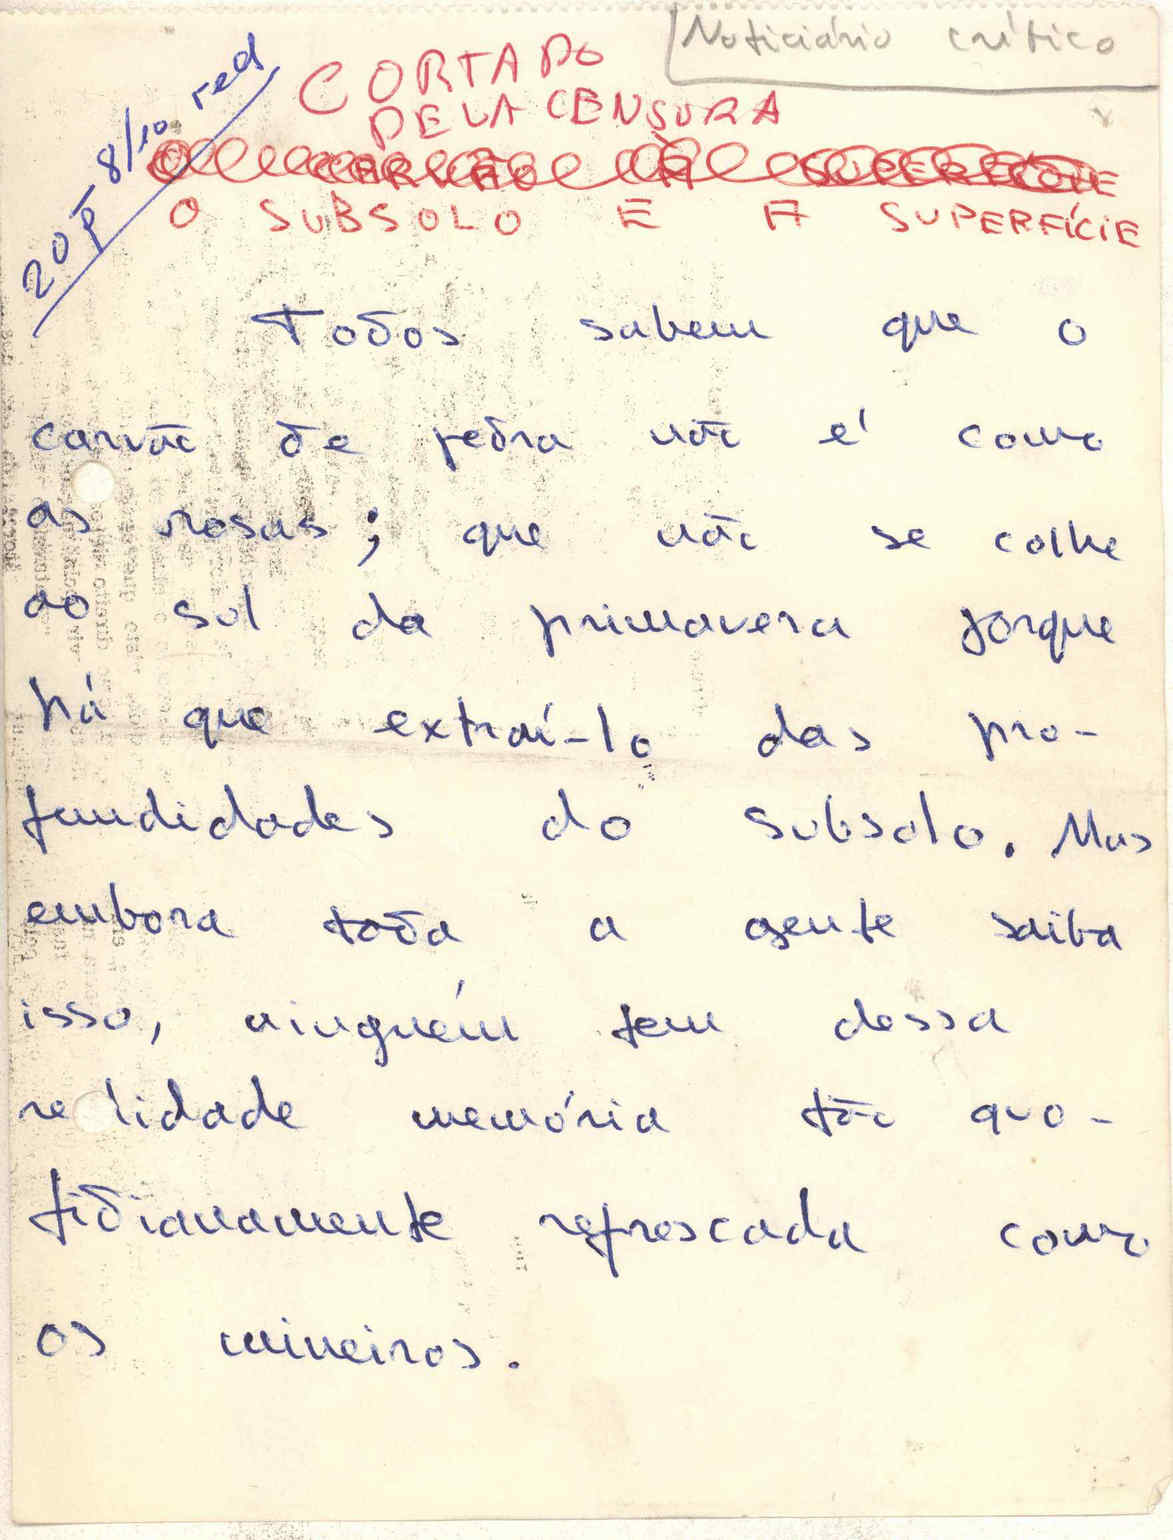 Noticiário crítico
20 p 8/10 red
CORTADO
PELA CENSURA
O CARVÃO À SUPERFÍCIE
O SUBSOLO E A SUPERFÍCIE
Todos sabem que o
carvão de pedra não é como
as rosas; que não se colhe
ao sol da primavera porque
há que extraí-lo das pro-
fundidades do subsolo. Mas
embora toda a gente saiba
isso, ninguém tem dessa
realidade memória tão quo-
tidianamente refrescada como
os mineiros.